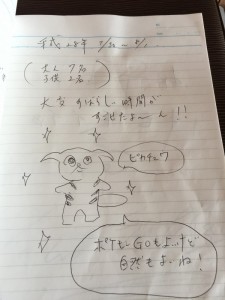 平成28年 7/30 〜 8/1
大人 7名
子供 2名
大変 すばらしい時間が
すごせたよ〜ん!!
ピカチュウ
ポケモンGOもよいけど
自然もよいね!